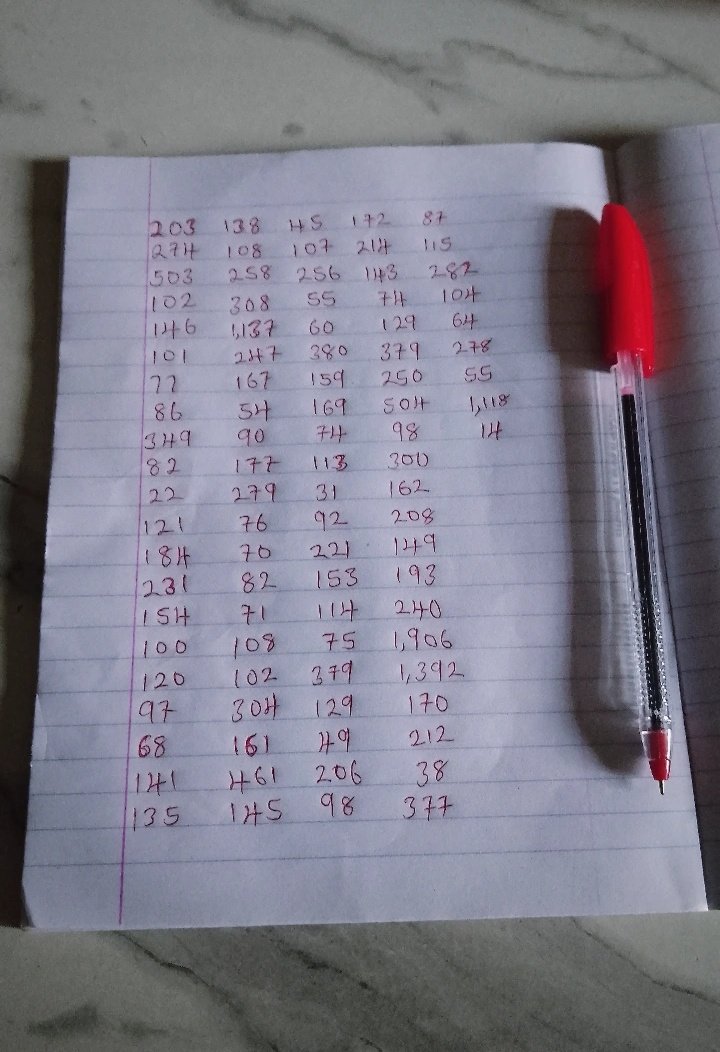 203 138 45 172 87
274 108 107 214 115
503 258 256 143 282
102 308 55 74 104
146 1,137 60 129 64
101 247 380 379 278
77 167 159 250 55
86 54 169 504 1,118
349 90 74 98 14
82 177 113 300
22 279 31 162
121 76 92 208
184 70 221 149
231 82 153 193
154 71 114 240
100 108 75 1,906
120 102 379 1,392
97 304 129 170
68 161 49 212
141 461 206 38
135 145 98 377